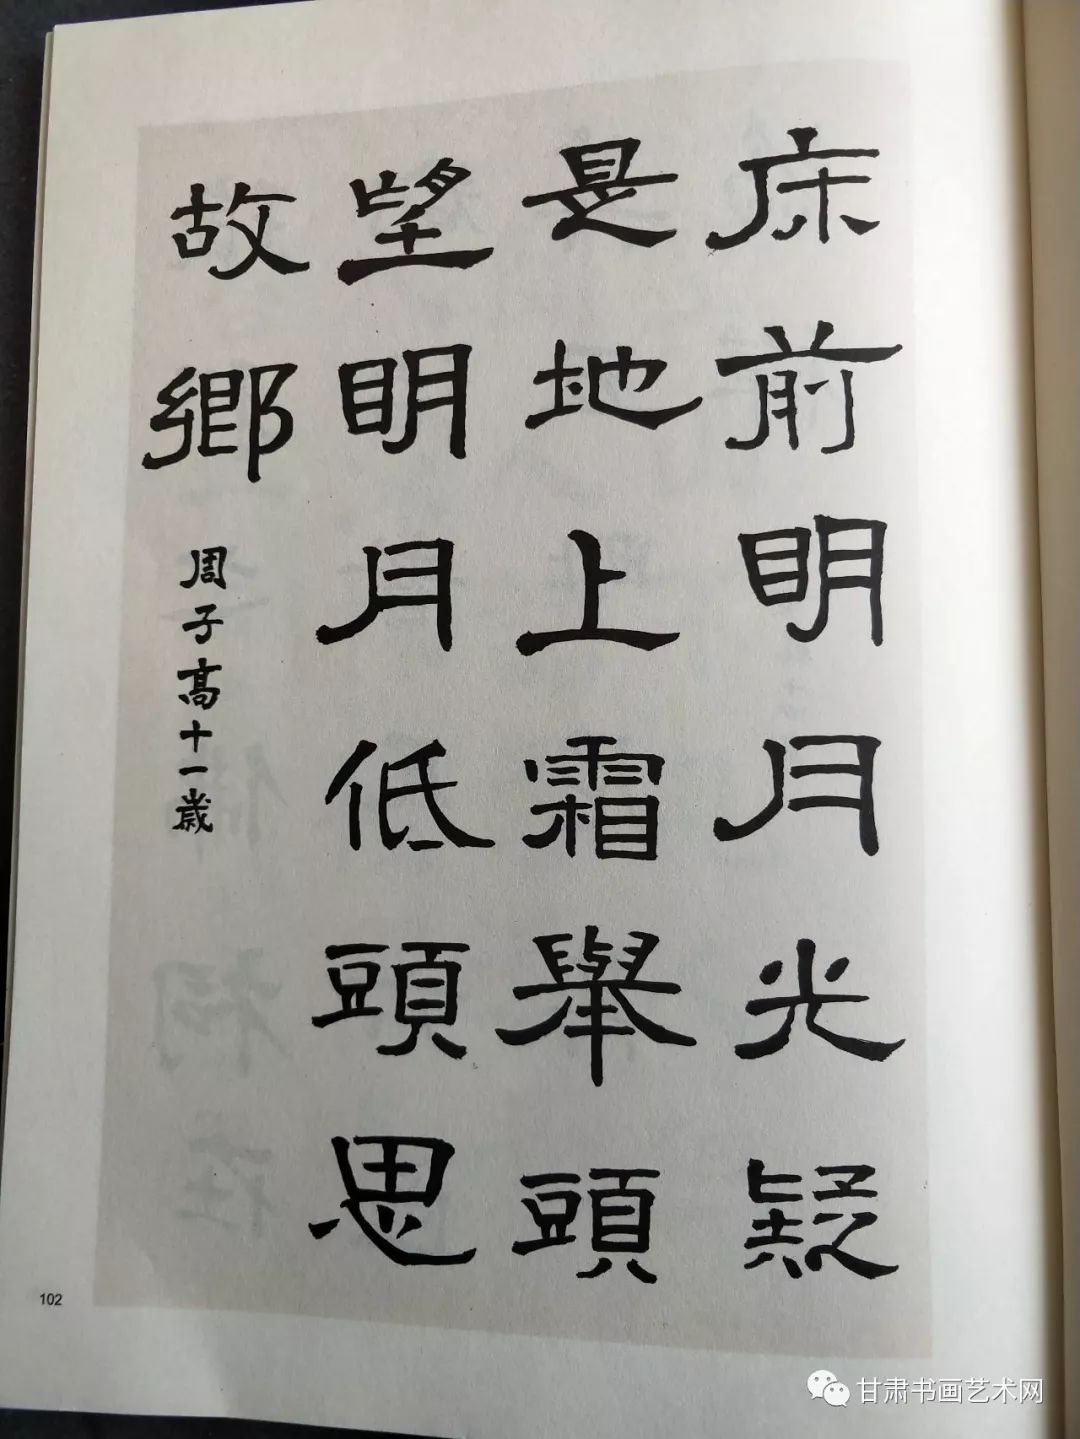 床前明月光疑
是地上霜舉頭
望明月低頭思
故鄉
周子高十一歲
102
甘肃书画艺术网